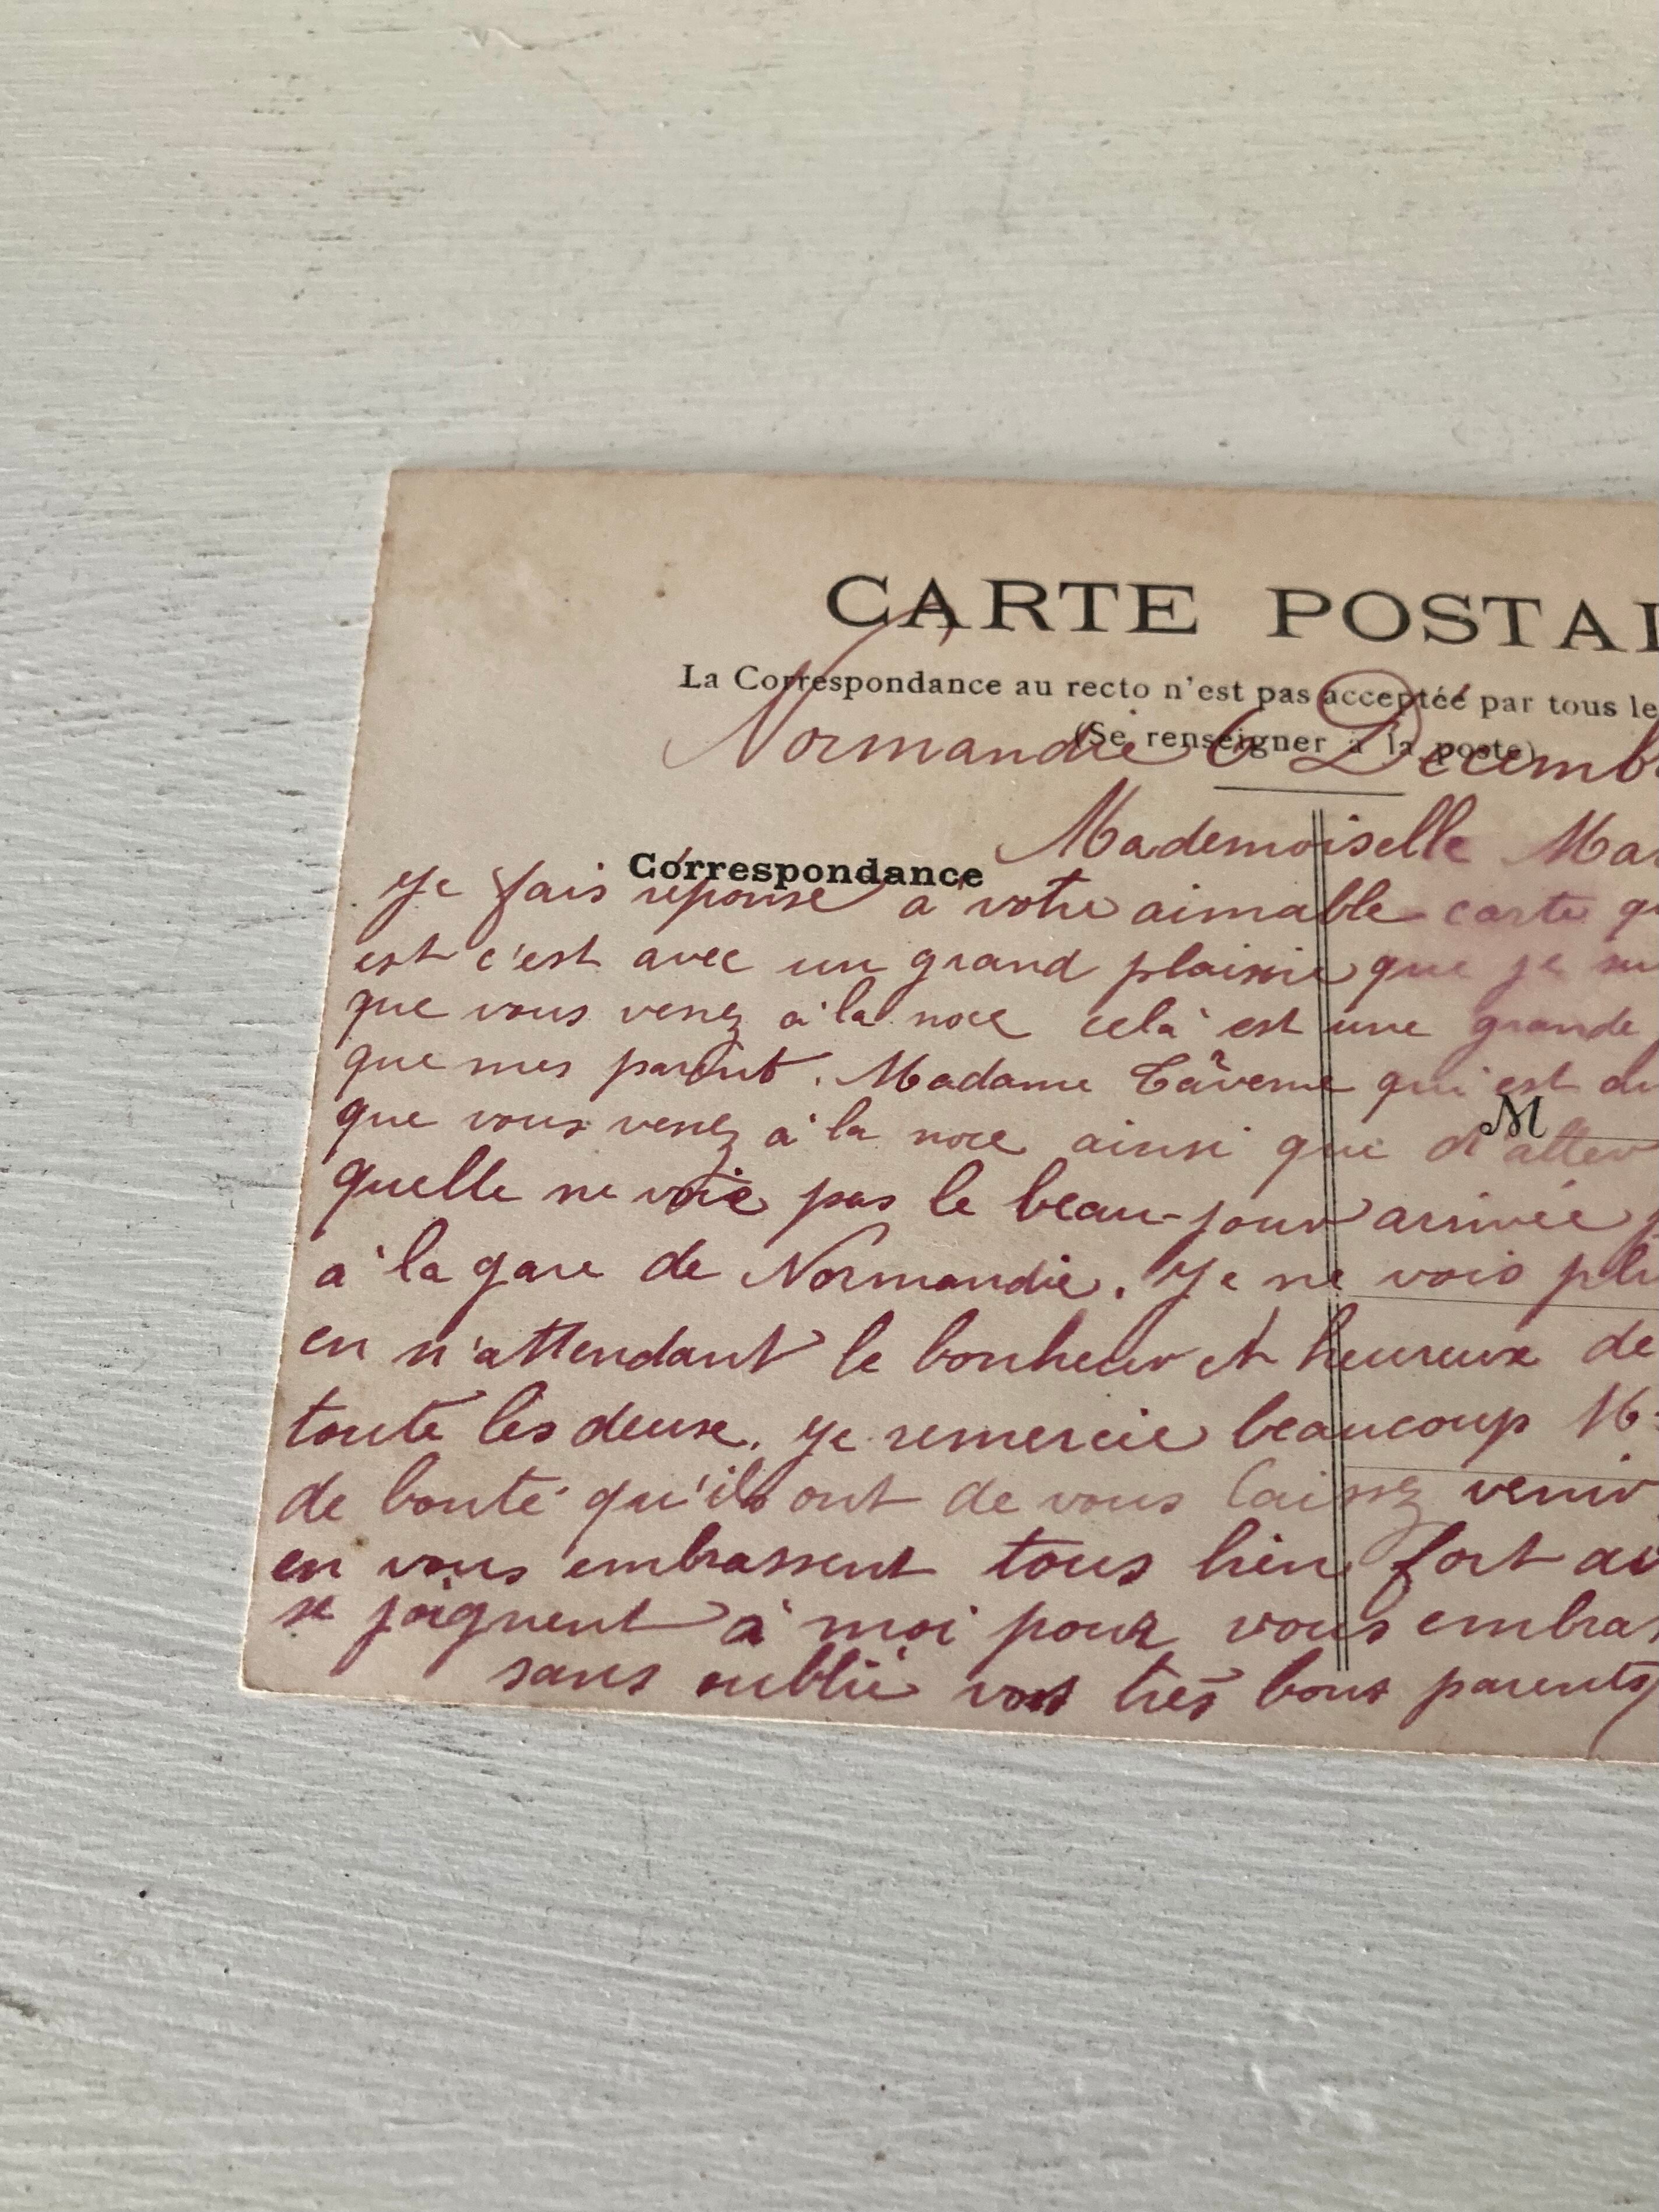 CARTE POSTAL
La Correspondance au recto n'est pas acceptée par tous le
(Se renseigner à la poste)
Normandie 6 Décemb
Mademoiselle Ma
Correspondance
Je fais réponse à votre aimable carte q
est c'est avec un grand plaisir que je
que vous venez à la noce celà est une grande
que mes parent. Madame Tâverne qui est du
que vous venez à la noce ainsi que d'aller
M
quelle ne voie pas le beau-jour arrivée
à la gare de Normandie. Je ne vois plu
en n'attendant le bonheur et heureux de
toute les deux. Je remercie beaucoup
de bonté qu'ils ont de vous laissez venir
en vous embrassent tous bien fort
se joignent à moi pour vous embras
sans oublié vos très bons parents